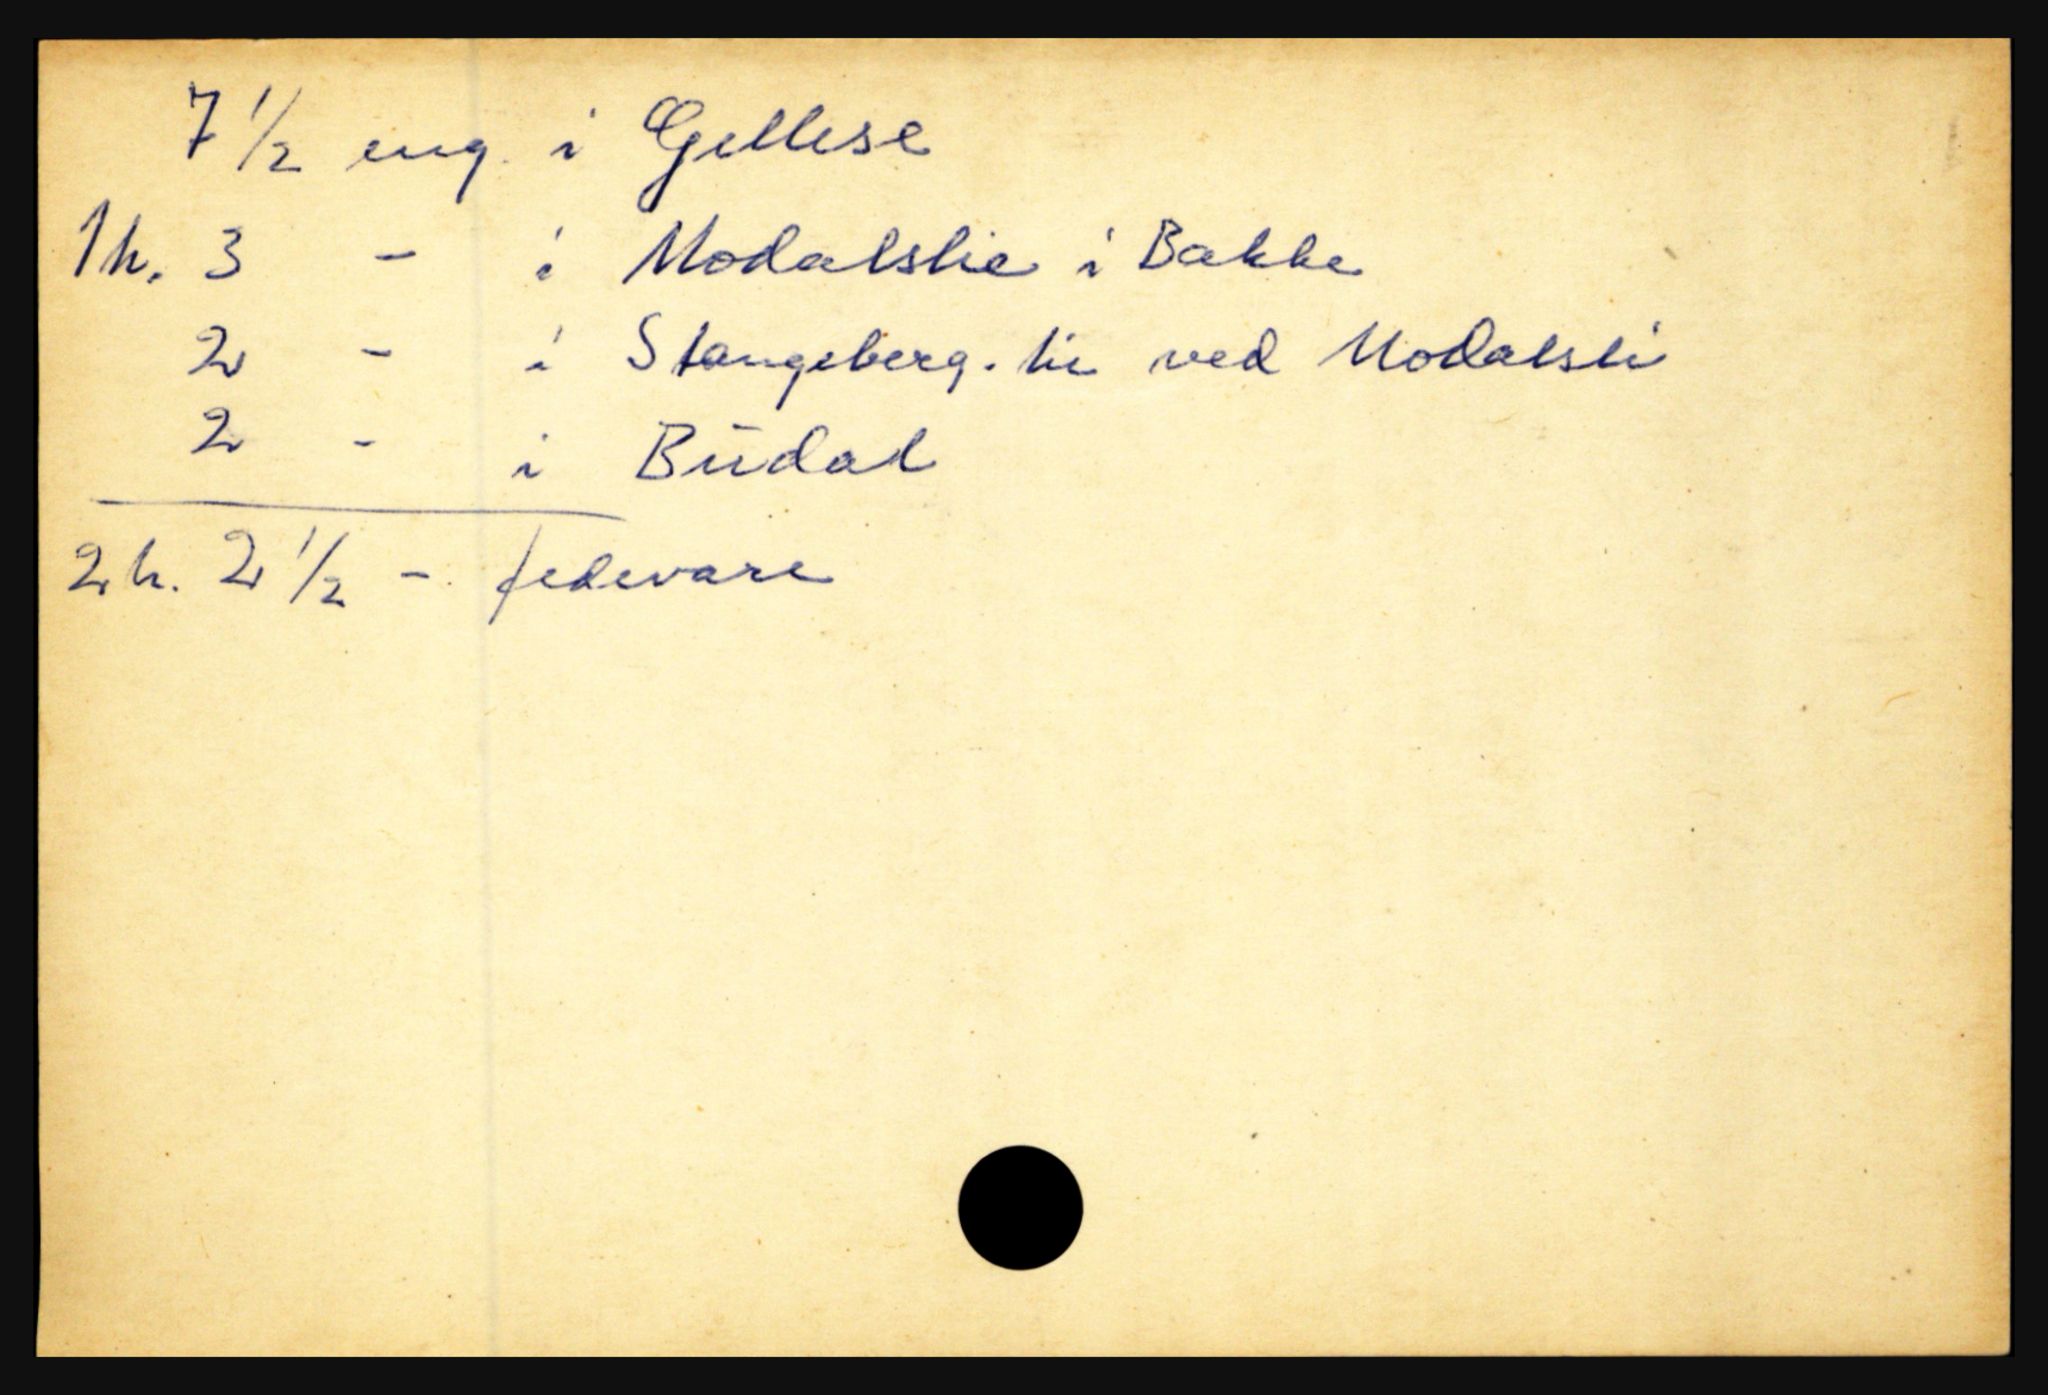 7 1/2 eng. i Gellese
1 h. 3 - i Modalslie i Bakke
2 - i Stangeberg. lie ved Modalsli
2 - i Budal
2 h. 2 1/2 - fedevare